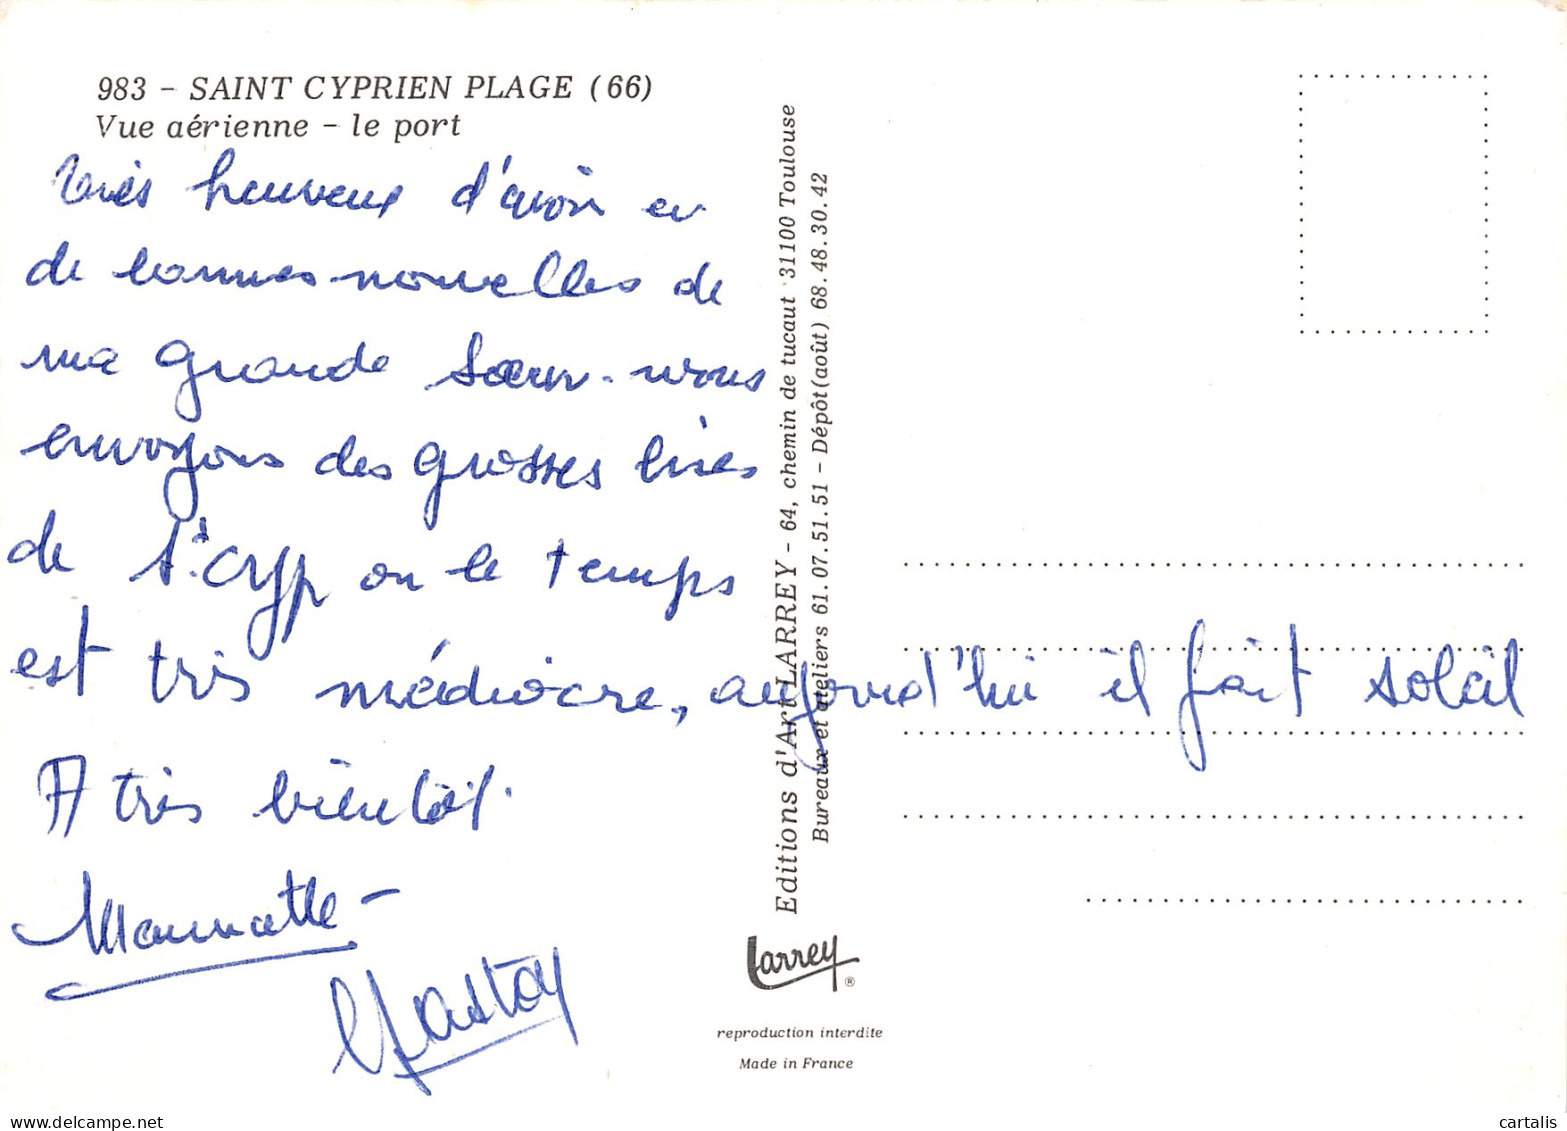 983 - SAINT CYPRIEN PLAGE (66)
Vue aérienne - le port
très heureux d'avoir eu
de bonnes nouvelles de
ma grande sœur. nous
envoyons des grosses bises
de St. Cyp ou le temps
est très médiocre, aujourd'hui il fait soleil
A très bientôt.
Editions d'Art LARREY - 64, chemin de tucaut 31100 Toulouse
Bureaux et ateliers 61.07.51.51 - Dépôt (août) 68.48.30.42
Larrey ®
reproduction interdite
Made in France
delcampe.net
cartalis